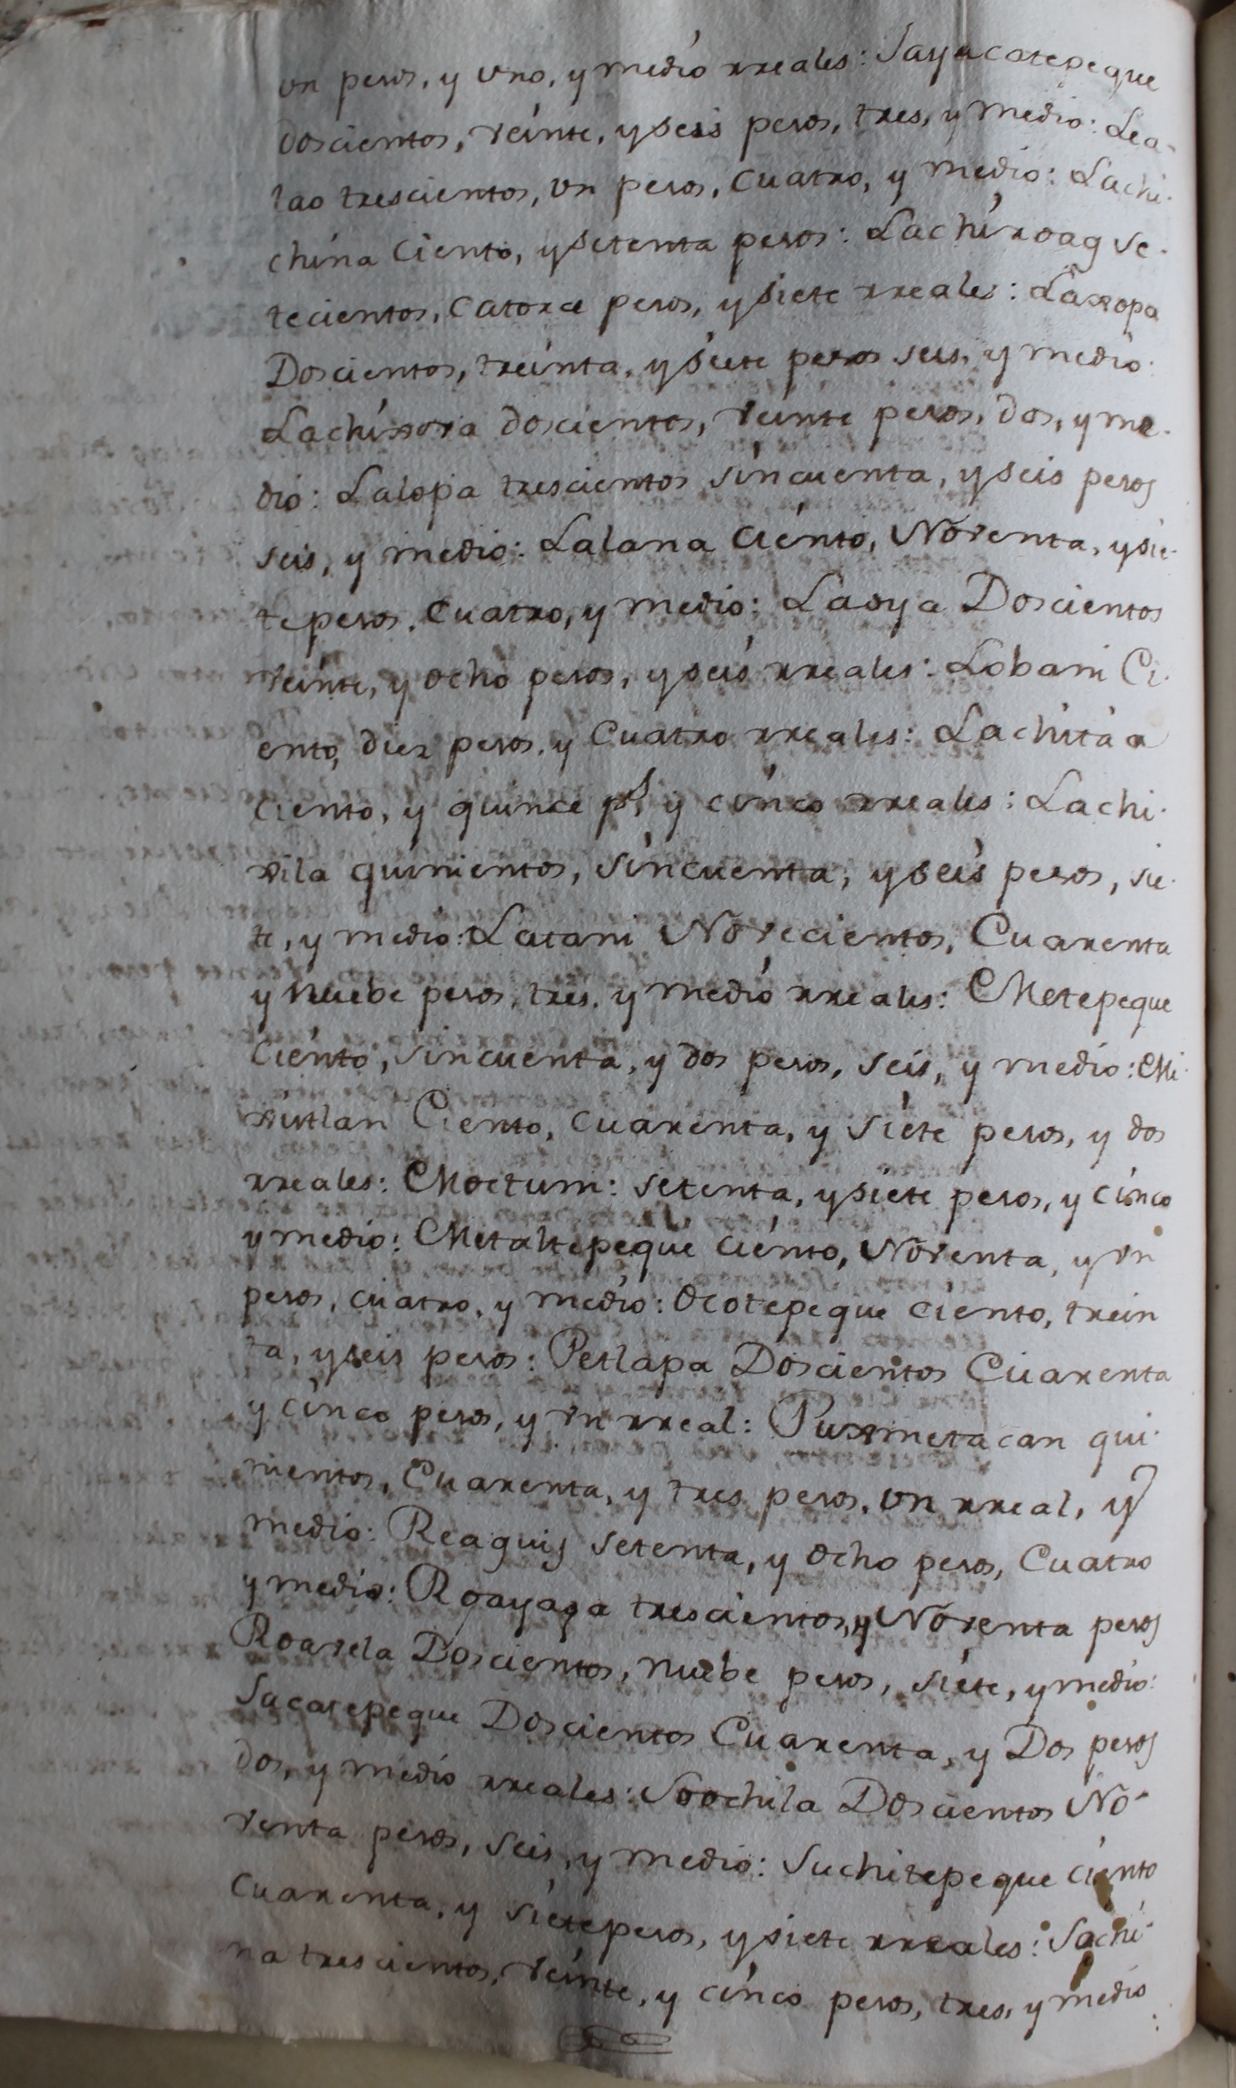 un pesos, y uno, y medio rreales: Jayacatepeque
Doscientos, veinte, y seis pesos, tres, y medio: Lea-
lao trescientos, un pesos, cuatro, y medio: Lachi-
china Ciento, y setenta pesos: Lachiroag se-
tecientos, Catorce pesos, y siete rreales: Laxopa
Doscientos, treinta, y siete pesos seis, y medio:
Lachixova doscientos, veinte pesos, dos, y me-
dio: Lalopa trescientos sincuenta, y seis pesos
seis, y medio: Lalana Ciento, Noventa, y sie-
te pesos, Cuatro, y medio: Laxya Doscientos
veinte, y ocho pesos, y seis rreales: Lobani Ci-
ento, diez pesos, y Cuatro rreales: Lachitaa
Ciento, y quince ps, y cinco rreales: Lachi-
xila quinientos, sincuenta, y seis pesos, sie-
te, y medio: Latani Novecientos, Cuarenta
y Nuebe pesos, tres, y medio rreales: Metepeque
Ciento, sincuenta, y dos pesos, seis, y medio: Mi-
xitlan Ciento, Cuarenta, y siete pesos, y dos
rreales: Moctum: setenta, y siete pesos, y cinco
y medio: Metaltepeque Ciento, Noventa, y vn
pesos, cuatro, y medio: Ocotepeque Ciento, trein
ta, y seis pesos: Petlapa Doscientos Cuarenta
y cinco pesos, y vn rreal: Puxmetacan qui-
nientos, Cuarenta, y tres pesos, un rreal, y
medio: Reaguij setenta, y ocho pesos, Cuatro
y medio: Roayaga trescientos, y Noventa pesos
Roavela Doscientos, Nuebe pesos, siete, y medio:
Sacatepeque Doscientos Cuarenta, y Dos pesos
dos, y medio rreales: Soochila Doscientos No-
venta pesos, seis, y medio: Suchitepeque Ciento
Cuarenta, y siete pesos, y siete rreales: Sochi-
na trescientos, veinte, y cinco pesos, tres, y medio: